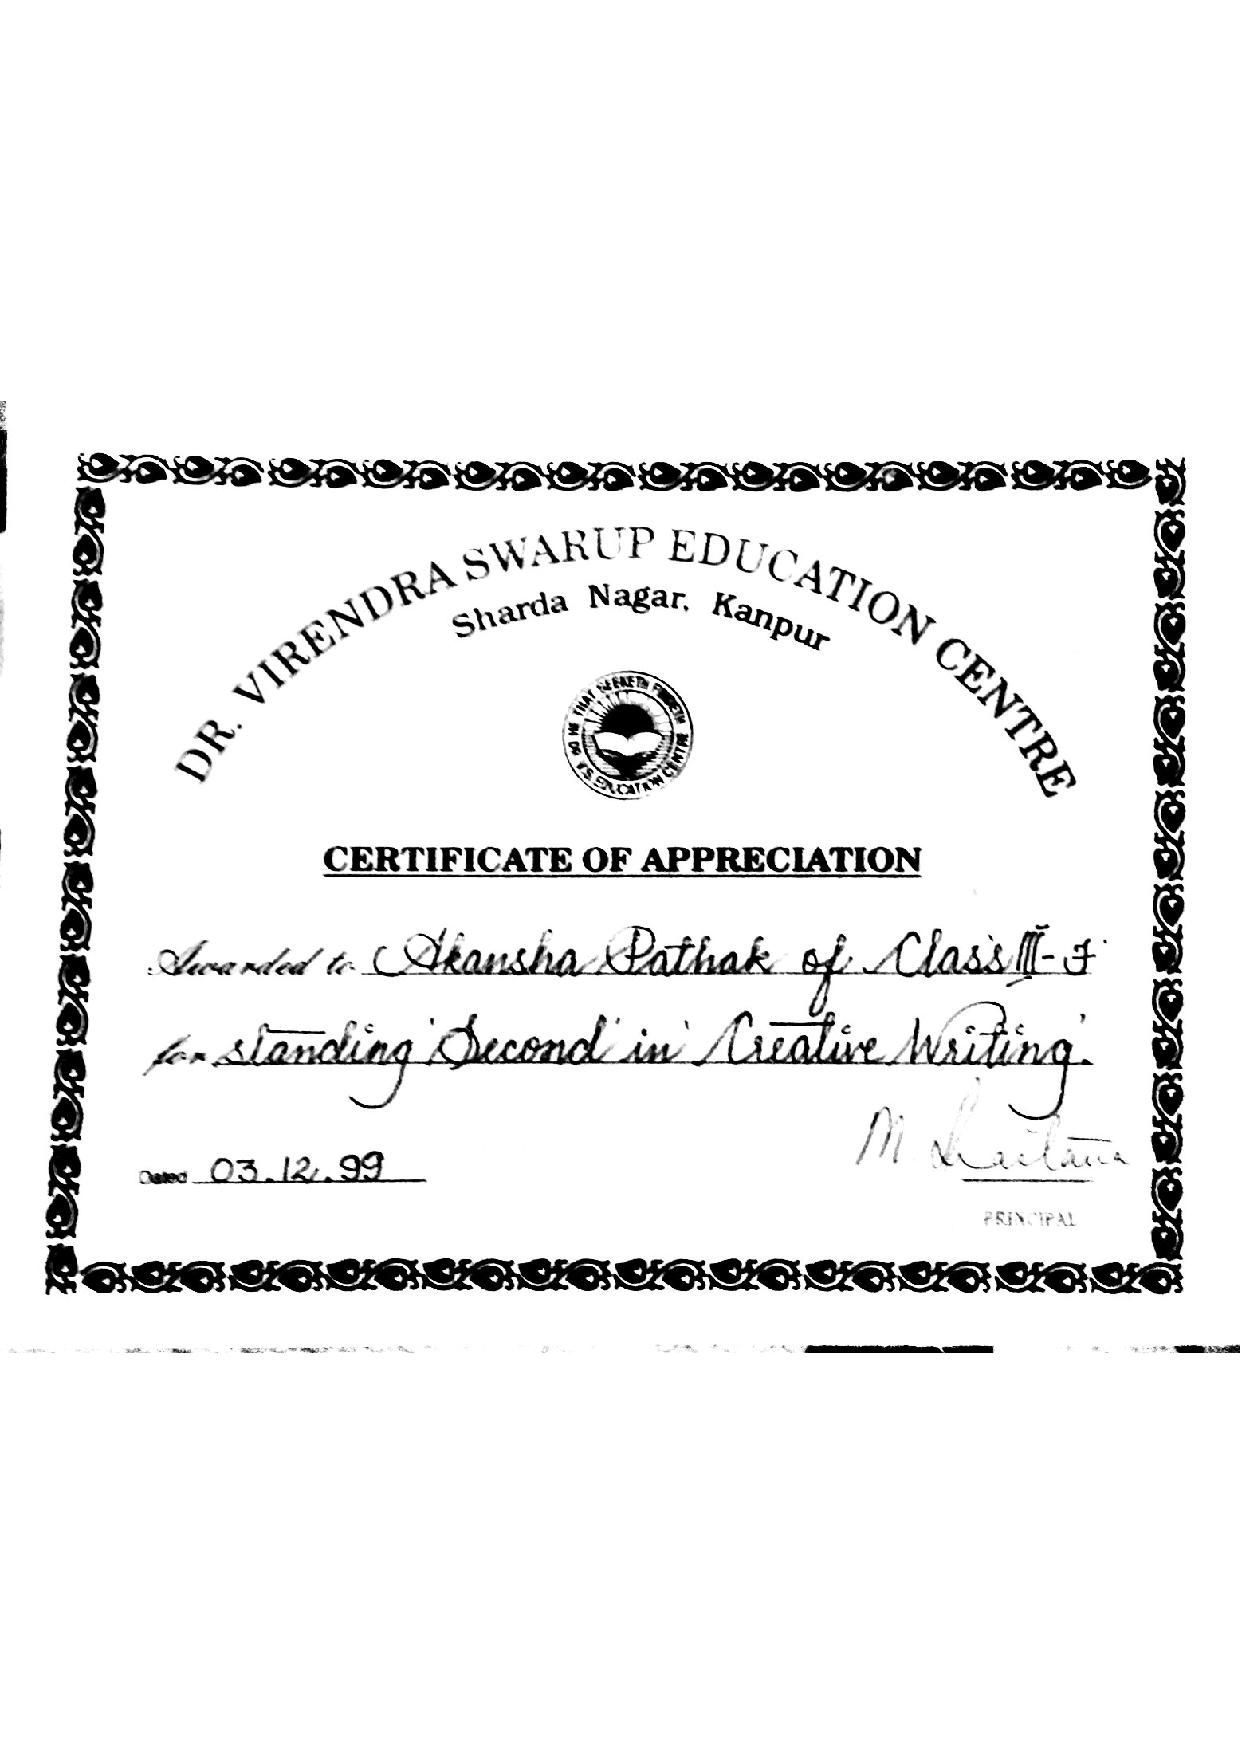 DR. VIRENDRA SWARUP EDUCATION CENTRE
Sharda Nagar, Kanpur
HE THAT SEEKETH FINDETH
DR. V.S. EDUCATION CENTRE
CERTIFICATE OF APPRECIATION
Awarded to Akansha Pathak of Class III-F
for standing 'Second' in 'Creative Writing'.
Dated 03.12.99
M.
PRINCIPAL